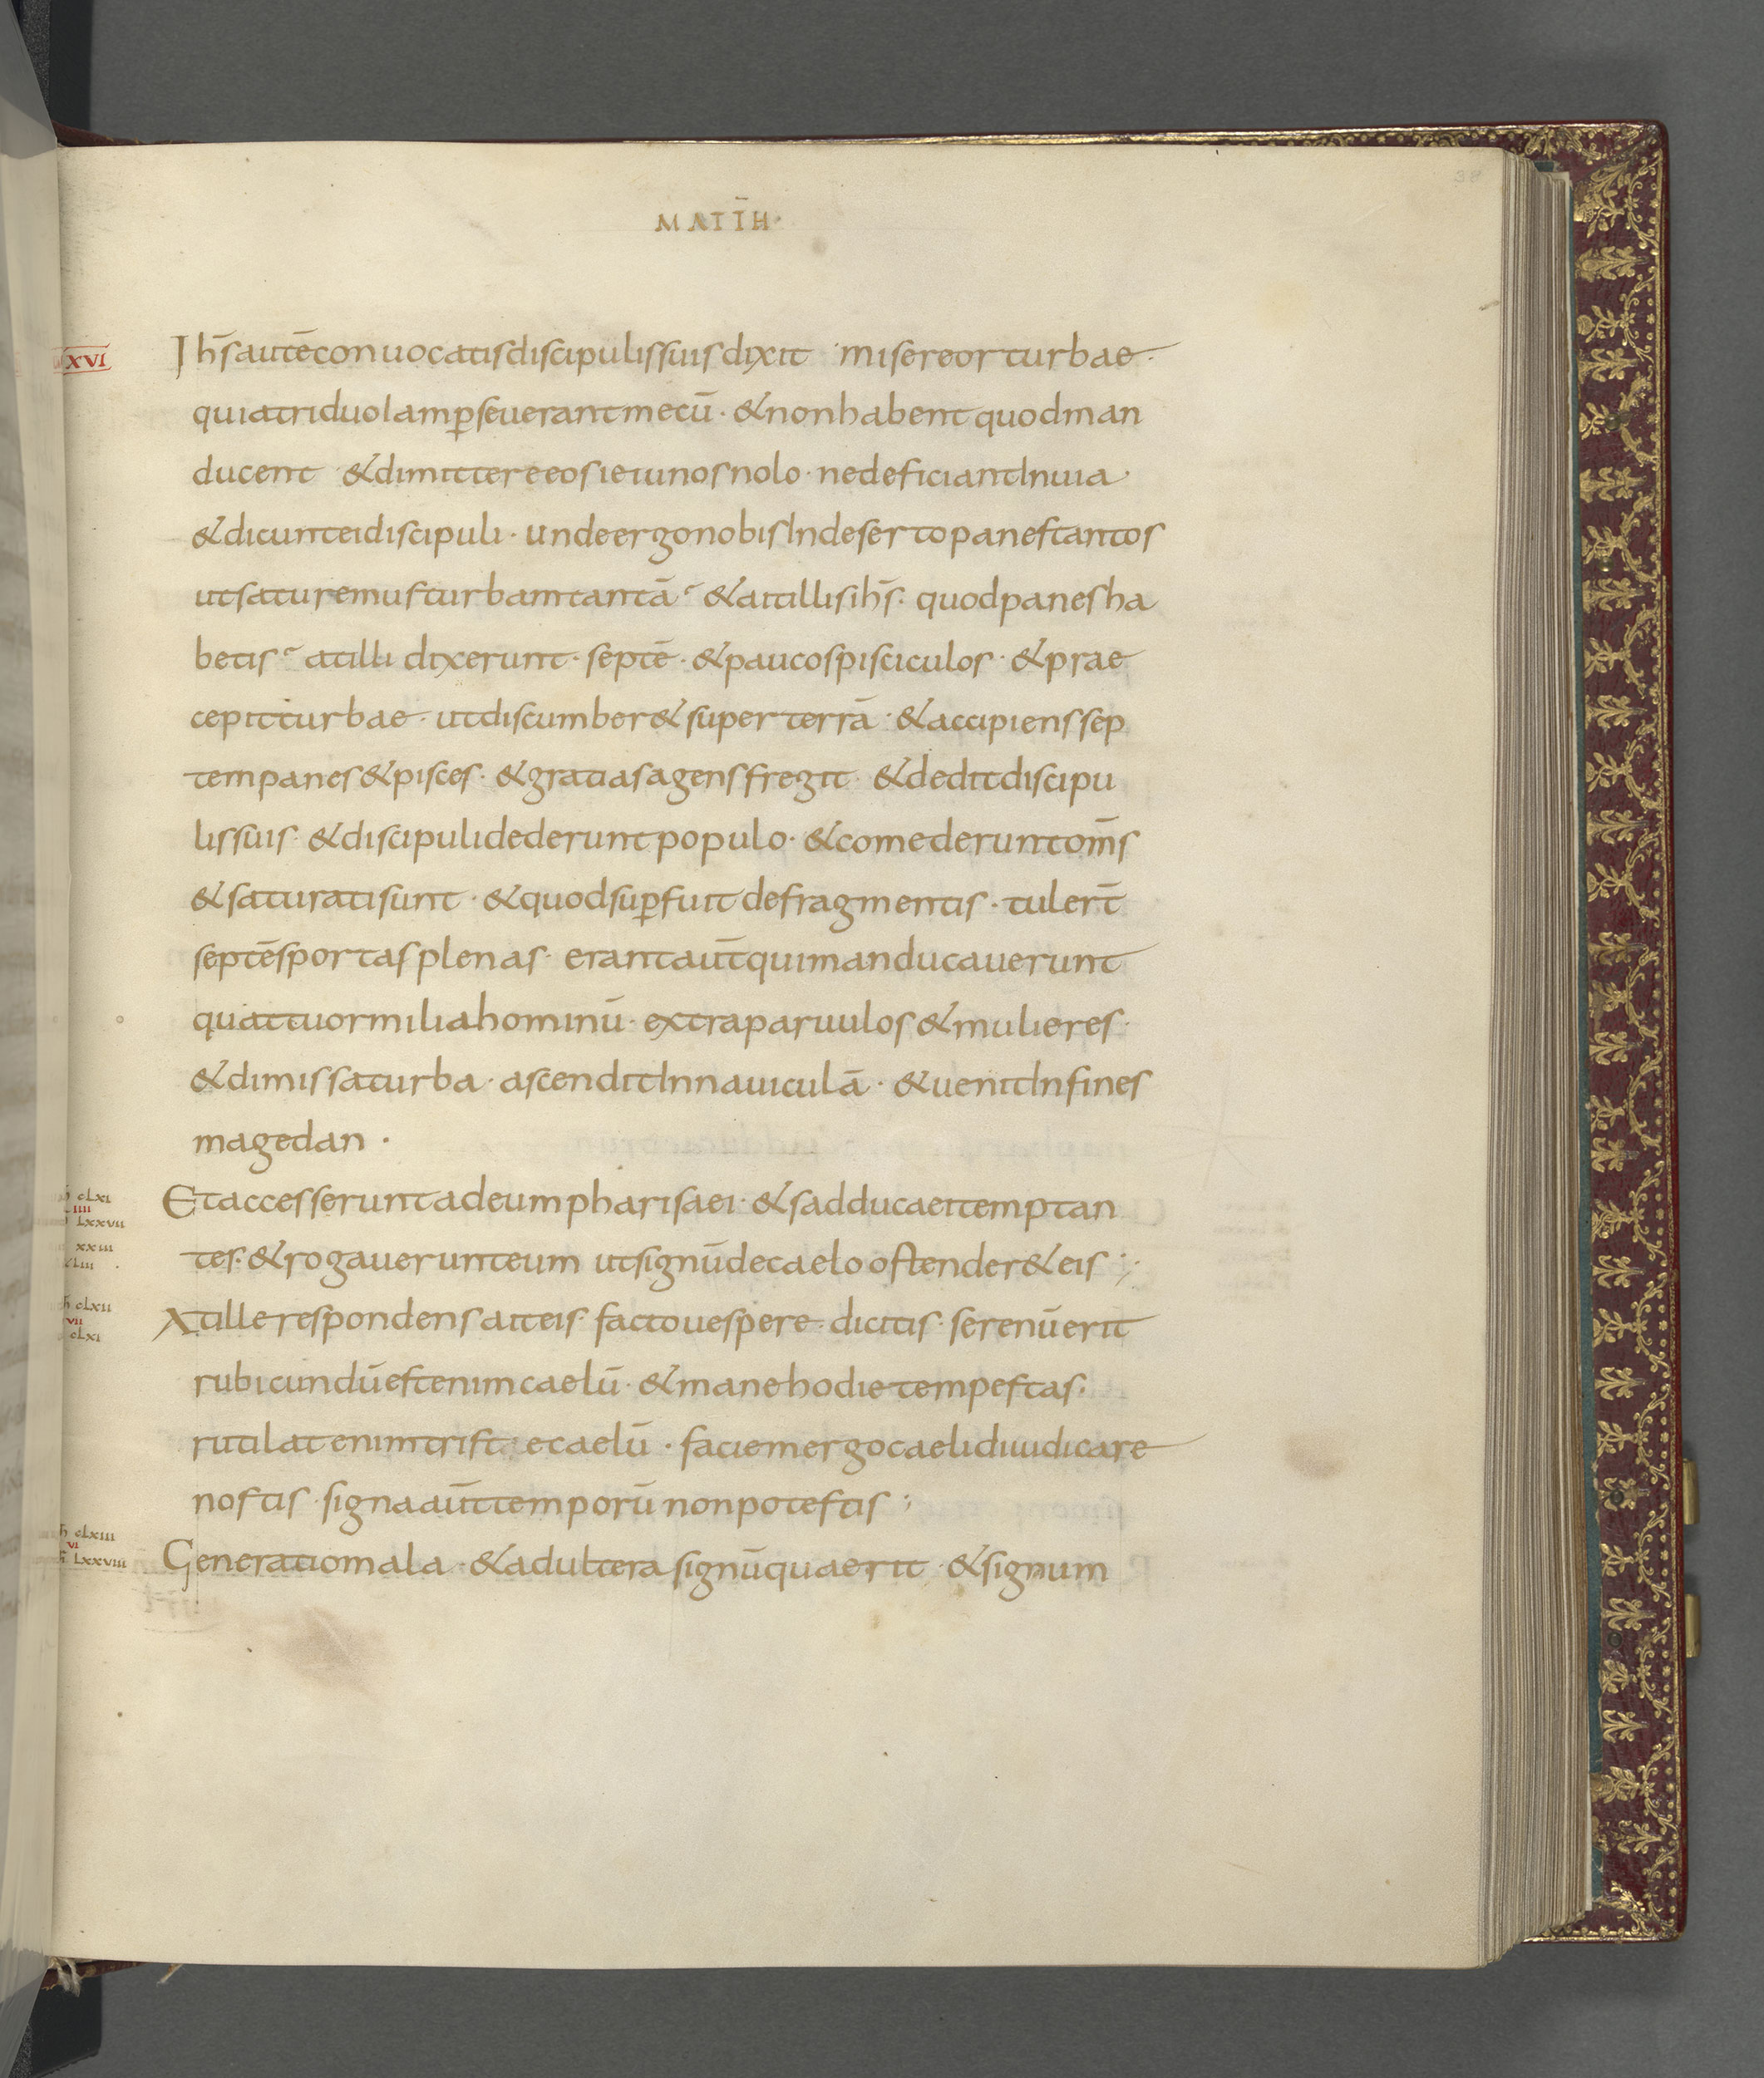 38
MATT̄H·
XVI
Ih̄s autē conuocatis discipulis suis dixit · misereor turbae ·
quia triduo Iam ꝑseuerant mecū · & non habent quod man
ducent · & dimittere eos ieiunos nolo · ne deficiant In uia ·
& dicunt ei discipuli · unde ergo nobis In deserto panes tantos
ut saturemus turbam tantā · & ait illis ih̄s · quod panes ha
betis · at illi dixerunt · septē · & paucos pisciculos · & prae
cepit turbae · ut discumber& super terrā · & accipiens sep
tem panes & pisces · & gratias agens fregit · & dedit discipu
lis suis · & discipuli dederunt populo · & comederunt om̄s
& saturati sunt · & quod suꝑfuit de fragmentis · tulert̄
septē sportas plenas · erant aut̄ qui manducauerunt
quattuor milia hominū · extra paruulos & mulieres ·
& dimissa turba · ascendit In nauiculā · & uenit In fines
magedan ·
CLXI
IIII
LXXVII
Et accesserunt ad eum pharisaei · & sadducaei temptan
XXIII
tes · & rogauerunt eum ut signū de caelo ostender& eis ;
CLXII
VII
CLXI
At ille respondens ait eis · facto uespere dicitis · serenū erit
rubicundū est enim caelū · & mane hodie tempestas ·
rutilat enim trist e caelū · faciem ergo caeli diiudicare
nostis · signa aut̄ temporū non potestis ;
CLXIII
VI
LXXVIII
Generatio mala · & adultera signū quaerit · & signum